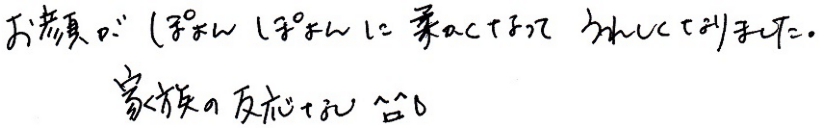 お顔が ぽよん ぽよんに 柔かくなって うれしくなりました。
家族の反応なし